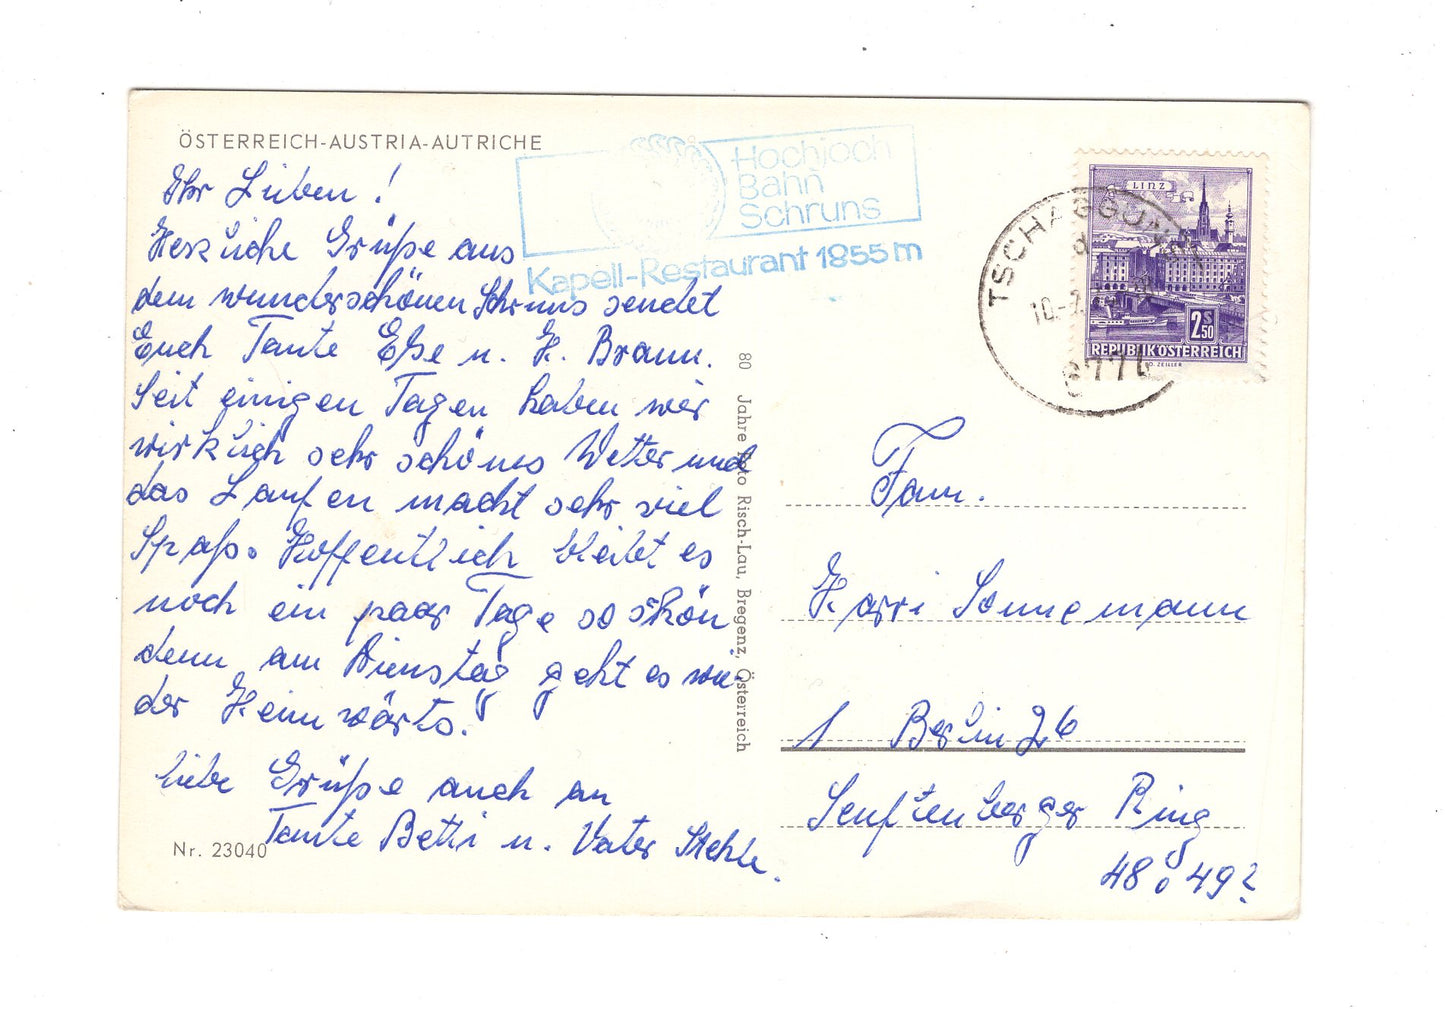 ÖSTERREICH-AUSTRIA-AUTRICHE
Ihr Lieben!
Herzliche Grüße aus
dem wunderschönen Schruns sendet
Euch Tante Else u. H. Braun.
Seit einigen Tagen haben wir
wirklich sehr schönes Wetter und
das Laufen macht sehr viel
Spaß. Hoffentlich bleibt es
noch ein paar Tage so schön
denn am Dienstag geht es wie
der Heimwärts!
Liebe Grüße auch an
Tante Betti u. Vater Stehle.
Nr. 23040
Hochjoch
Bahn
Schruns
Kapell-Restaurant 1855m
80 Jahre Foto Risch-Lau, Bregenz, Österreich
LINZ
2S50
REPUBLIK ÖSTERREICH
TSCHAGGUNS
10.-7.
6774
Fam.
Harri Sonnemann
1 Berlin 26
Senftenberger Ring
48 o 49?